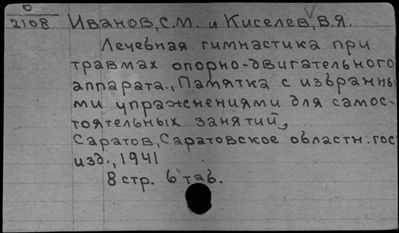 6
2108 Иванов, С.М. и Киселев, В.Я.
Лечебная гимнастика при
травмах опорно-двигательного
аппарата., Памятка с избранны-
ми упражнениями для самос-
тоятельных занятий,
Саратов, Саратовское областн. гос
изд., 1941
8 стр. 6 таб.